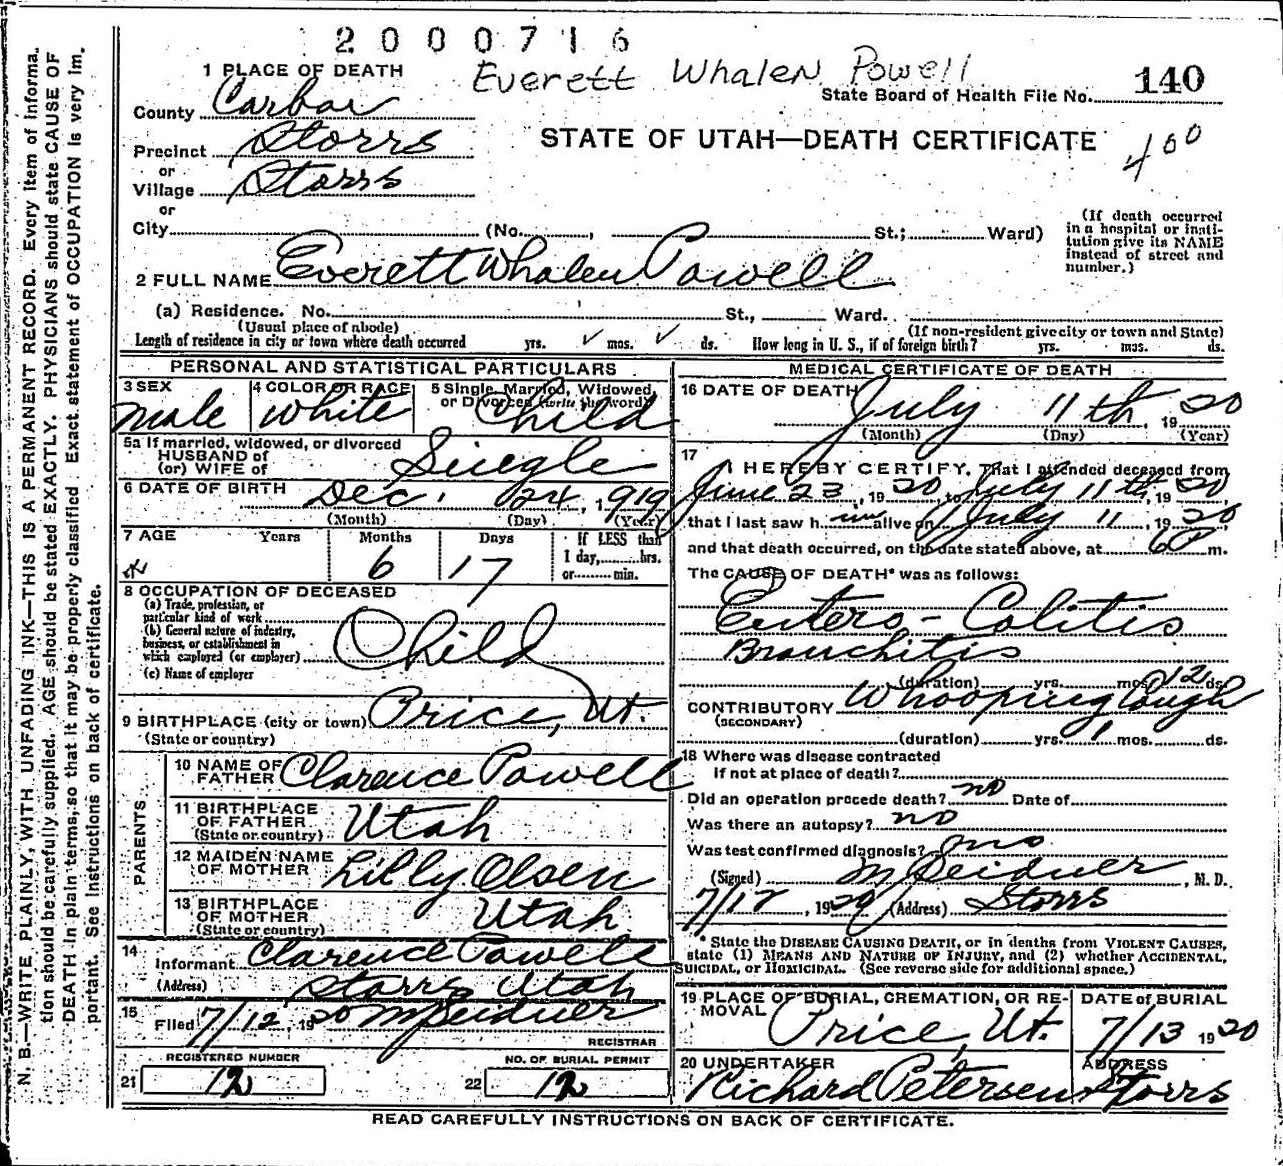 2000716
Everett Whalen Powell
1 PLACE OF DEATH
State Board of Health File No. 140
County Carbon
STATE OF UTAH—DEATH CERTIFICATE
400
Precinct Storrs
or
Village Storrs
or
City (No. , St.; Ward)
(If death occurred in a hospital or institution give its NAME instead of street and number.)
2 FULL NAME Everett Whalen Powell
(a) Residence. No. St., Ward.
(Usual place of abode) (If non-resident give city or town and State)
Length of residence in city or town where death occurred yrs. ✓ mos. ✓ ds. How long in U. S., if of foreign birth? yrs. mos. ds.
PERSONAL AND STATISTICAL PARTICULARS
3 SEX male
4 COLOR OR RACE White
5 Single, Married, Widowed, or Divorced (write the word) Child
5a If married, widowed, or divorced
HUSBAND of
(or) WIFE of Single
6 DATE OF BIRTH Dec. 24, 1919
(Month) (Day) (Year)
7 AGE Years Months 6 Days 17
If LESS than
1 day, hrs.
or min.
8 OCCUPATION OF DECEASED
(a) Trade, profession, or particular kind of work
(b) General nature of industry, business, or establishment in which employed (or employer) Child
(c) Name of employer
9 BIRTHPLACE (city or town) Price, Ut.
(State or country)
PARENTS
10 NAME OF FATHER Clarence Powell
11 BIRTHPLACE OF FATHER Utah
(State or country)
12 MAIDEN NAME OF MOTHER Lilly Olsen
13 BIRTHPLACE OF MOTHER Utah
(State or country)
14 Informant Clarence Powell
(Address) Storrs Utah
15 Filed 7/12, 1920 M Seidner
REGISTRAR
REGISTERED NUMBER
21 12
NO. OF BURIAL PERMIT
22 12
MEDICAL CERTIFICATE OF DEATH
16 DATE OF DEATH July 11th, 1920
(Month) (Day) (Year)
17 I HEREBY CERTIFY, That I attended deceased from
June 23, 1920, to July 11th, 1920,
that I last saw him alive on July 11, 1920
and that death occurred, on the date stated above, at 6 P m.
The CAUSE OF DEATH* was as follows:
Entero-Colitis
Bronchitis
(duration) yrs. mos. 12 ds.
CONTRIBUTORY Whooping Cough
(SECONDARY)
(duration) yrs. 1 mos. ds.
18 Where was disease contracted
if not at place of death?
Did an operation precede death? no Date of
Was there an autopsy? no
Was test confirmed diagnosis? no
(Signed) M Seidner, M. D.
7/12, 1920 (Address) Storrs
* State the DISEASE CAUSING DEATH, or in deaths from VIOLENT CAUSES,
state (1) MEANS AND NATURE OF INJURY, and (2) whether ACCIDENTAL,
SUICIDAL, or HOMICIDAL. (See reverse side for additional space.)
19 PLACE OF BURIAL, CREMATION, OR REMOVAL Price, Ut.
DATE of BURIAL 7/13 1920
20 UNDERTAKER Richard Petersen
ADDRESS Storrs
READ CAREFULLY INSTRUCTIONS ON BACK OF CERTIFICATE.
N. B.—WRITE PLAINLY, WITH UNFADING INK—THIS IS A PERMANENT RECORD. Every item of informa-
tion should be carefully supplied. AGE should be stated EXACTLY. PHYSICIANS should state CAUSE OF
DEATH in plain terms, so that it may be properly classified. Exact statement of OCCUPATION is very im-
portant. See instructions on back of certificate.